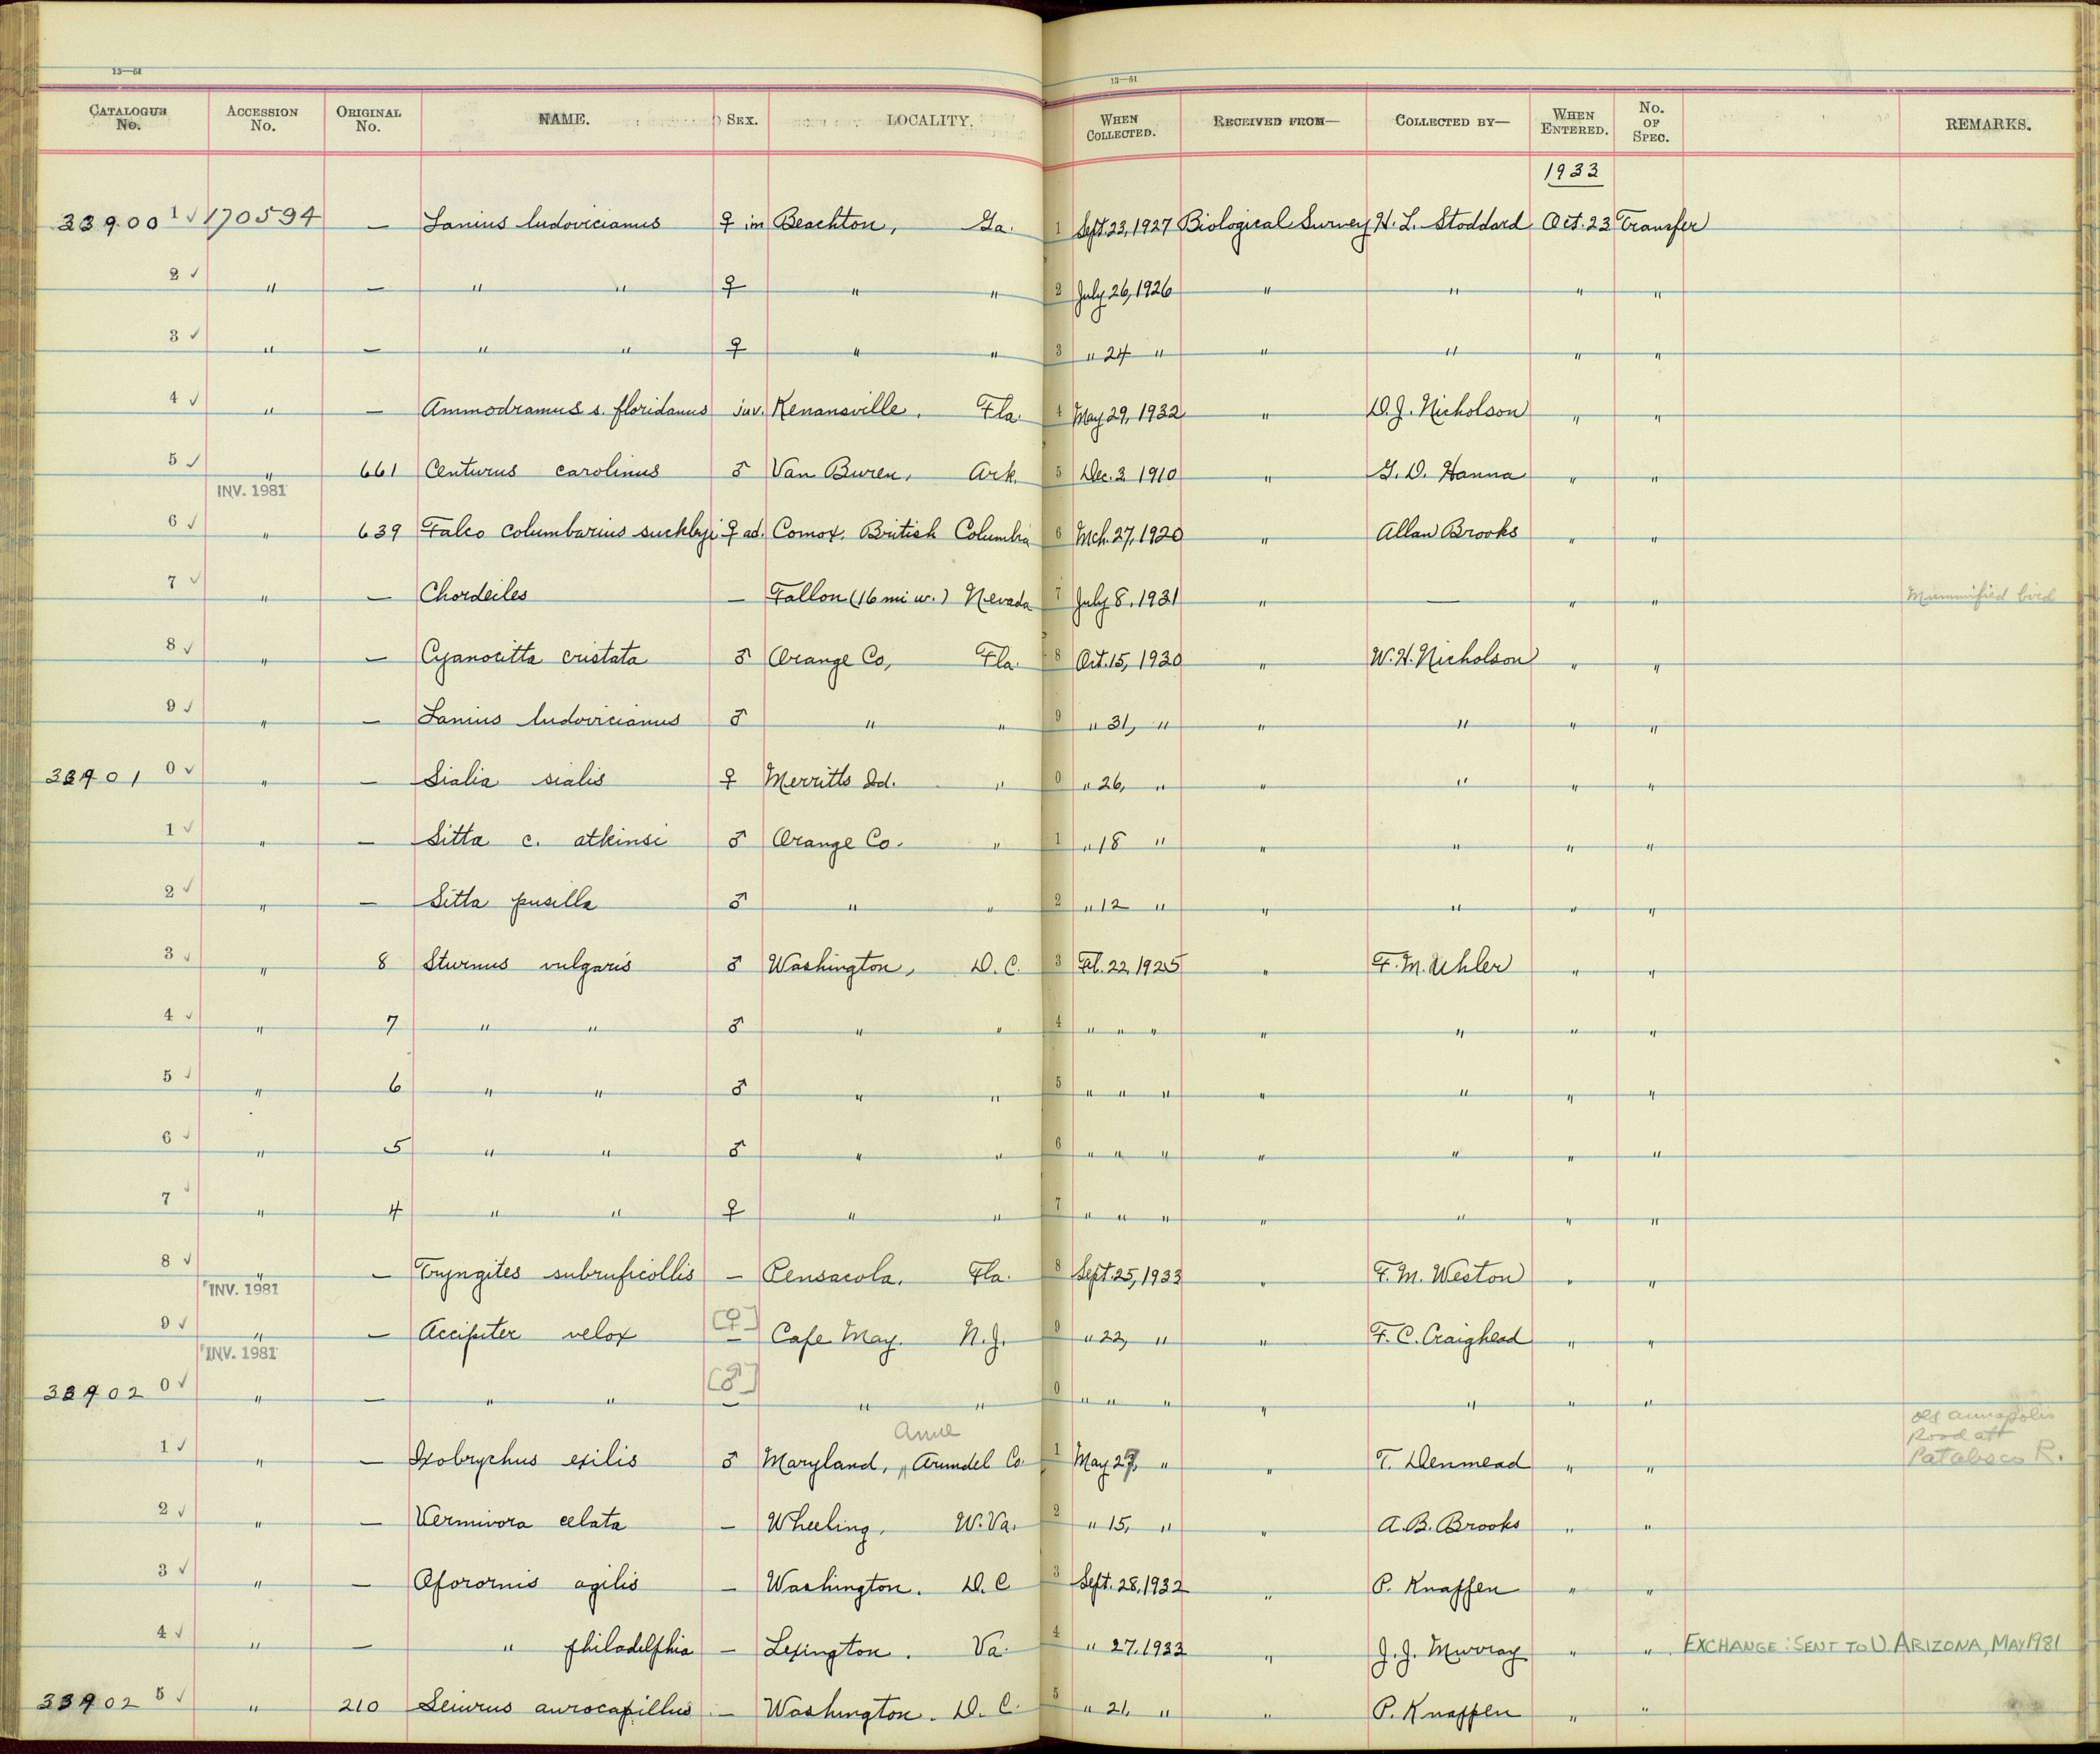 13—61
13—61
CATALOGUE No. ACCESSION No. ORIGINAL No. NAME. SEX. LOCALITY. WHEN COLLECTED. RECEIVED FROM— COLLECTED BY— WHEN ENTERED. NO. OF SPEC. REMARKS.
1933
339001 ✓ 170594 — Lanius ludovicianus ♀ im Beachton, Ga. 1 Sept. 23, 1927 Biological Survey H. L. Stoddard Oct. 23 Transfer
2 ✓ " — " " ♀ " " 2 July 26, 1926 " " " "
3 ✓ " — " " ♀ " " 3 " 24 " " " " "
4 ✓ " — Ammodramus s. floridanus juv. Kenansville, Fla. 4 May 29, 1932 " D. J. Nicholson " "
5 ✓ " 661 Centurus carolinus ♂ Van Buren, Ark. 5 Dec. 3 1910 " G. D. Hanna " "
INV. 1981
6 ✓ " 639 Falco columbarius suckleyi ♀ ad. Comox, British Columbia 6 Mch. 27, 1920 " Allan Brooks " "
7 ✓ " — Chordeiles — Fallon (16 mi w.) Nevada 7 July 8, 1931 " — " " Mummified bird
8 ✓ " — Cyanocitta cristata ♂ Orange Co, Fla. 8 Oct. 15, 1930 " W. H. Nicholson " "
9 ✓ " — Lanius ludovicianus ♂ " " 9 " 31, " " " " "
339010 ✓ " — Sialia sialis ♀ Merritts Id. " 0 " 26, " " " " "
1 ✓ " — Sitta c. atkinsi ♂ Orange Co. " 1 " 18 " " " " "
2 ✓ " — Sitta pusilla ♂ " " 2 " 12 " " " " "
3 ✓ " 8 Sturnus vulgaris ♂ Washington, D. C. 3 Feb. 22, 1925 " F. M. Uhler " "
4 ✓ " 7 " " ♂ " " 4 " " " " " " "
5 ✓ " 6 " " ♂ " " 5 " " " " " " "
6 ✓ " 5 " " ♂ " " 6 " " " " " " "
7 ✓ " 4 " " ♀ " " 7 " " " " " " "
8 ✓ " — Tryngites subruficollis — Pensacola, Fla. 8 Sept. 25, 1933 " F. M. Weston " "
INV. 1981
9 ✓ " — Accipiter velox [♀] — Cape May. N. J. 9 " 22, " " F. C. Craighead " "
INV. 1981
339020 ✓ " — " " [♂] — " " 0 " " " " " " "
1 ✓ " — Ixobrychus exilis ♂ Maryland, Anne Arundel Co. 1 May 27, " " T. Denmead " " old annapolis
Road att
Patabsco R.
2 ✓ " — Vermivora celata — Wheeling, W. Va. 2 " 15, " " A. B. Brooks " "
3 ✓ " — Oporornis agilis — Washington. D. C 3 Sept. 28, 1932 " P. Knappen " "
4 ✓ " — " philadelphia — Lexington. Va. 4 " 27, 1933 " J. J. Murray " " EXCHANGE: SENT TO U. ARIZONA, MAY 1981
339025 ✓ " 210 Seiurus aurocapillus — Washington. D. C. 5 " 21, " " P. Knappen " "